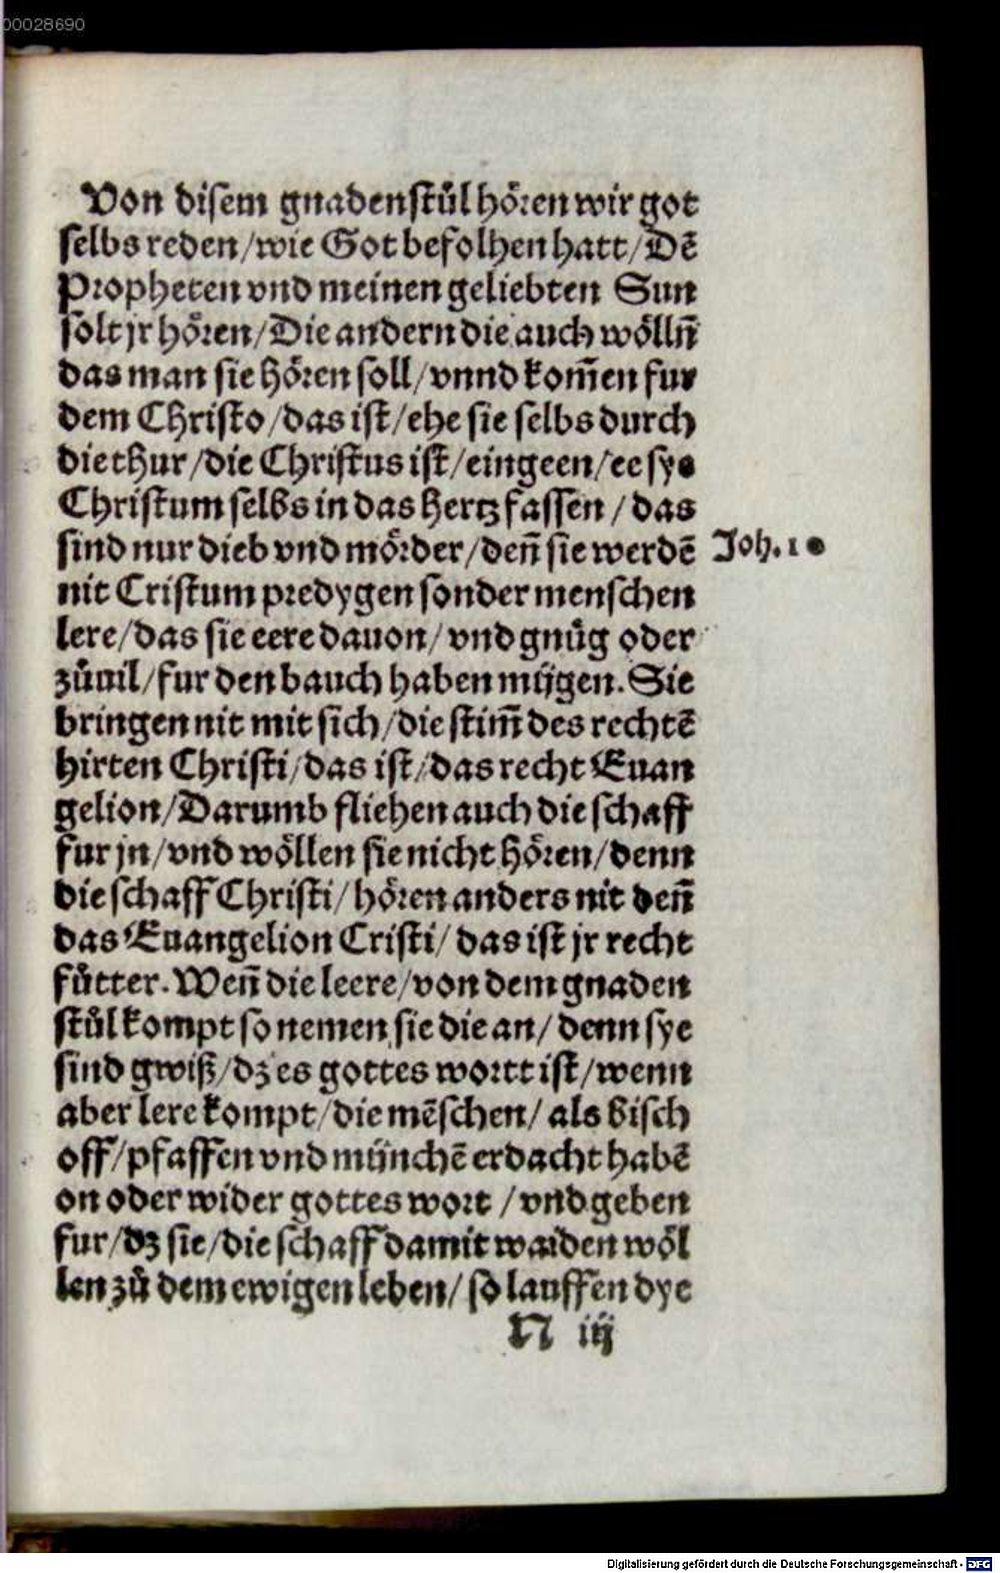 00028690
Von disem gnadenstůl hören wir got
selbs reden/wie Got befolhen hatt/Dē
Propheten vnd meinen geliebten Sun
solt jr hören/Die andern die auch wölln̄
das man sie hören soll/vnnd kom̄en fur
dem Christo/das ist/ehe sie selbs durch
die thur/die Christus ist/eingeen/ee sye
Christum selbs in das hertz fassen/das
sind nur dieb vnd mörder/den̄ sie werdē
Joh.10
nit Cristum predygen sonder menschen
lere/das sie eere dauon/vnd gnůg oder
zůuil/fur den bauch haben mügen. Sie
bringen nit mit sich/die stim̄ des rechtē
hirten Christi/das ist/das recht Euan
gelion/Darumb fliehen auch die schaff
fur jn/vnd wöllen sie nicht hören/denn
die schaff Christi/hören anders nit den̄
das Euangelion Cristi/das ist jr recht
fůtter. Wen̄ die leere/von dem gnaden
stůl kompt so nemen sie die an/denn sye
sind gwiß/dz es gottes wortt ist/wenn
aber lere kompt/die mēschen/als bisch
off/pfaffen vnd münchē erdacht habē
on oder wider gottes wort/vnd geben
fur/dz sie/die schaff damit waiden wöl
len zů dem ewigen leben/so lauffen dye
N iij
Digitalisierung gefördert durch die Deutsche Forschungsgemeinschaft - DFG